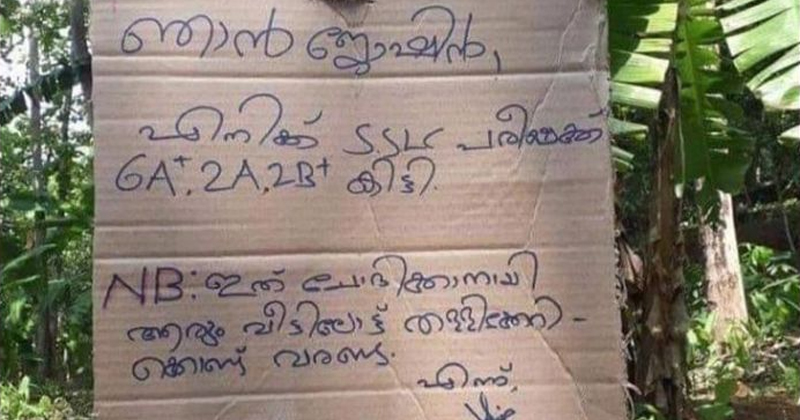 ഞാൻ ജോഷിൻ,
എനിക്ക് SSLC പരീക്ഷക്ക്
6A+, 2A, 2B+ കിട്ടി.
NB: ഇത് ചോദിക്കാനായി
ആരും വീട്ടിലോട്ട്
ക്കൊണ്ട് വരണ്ട.
എന്ന്,